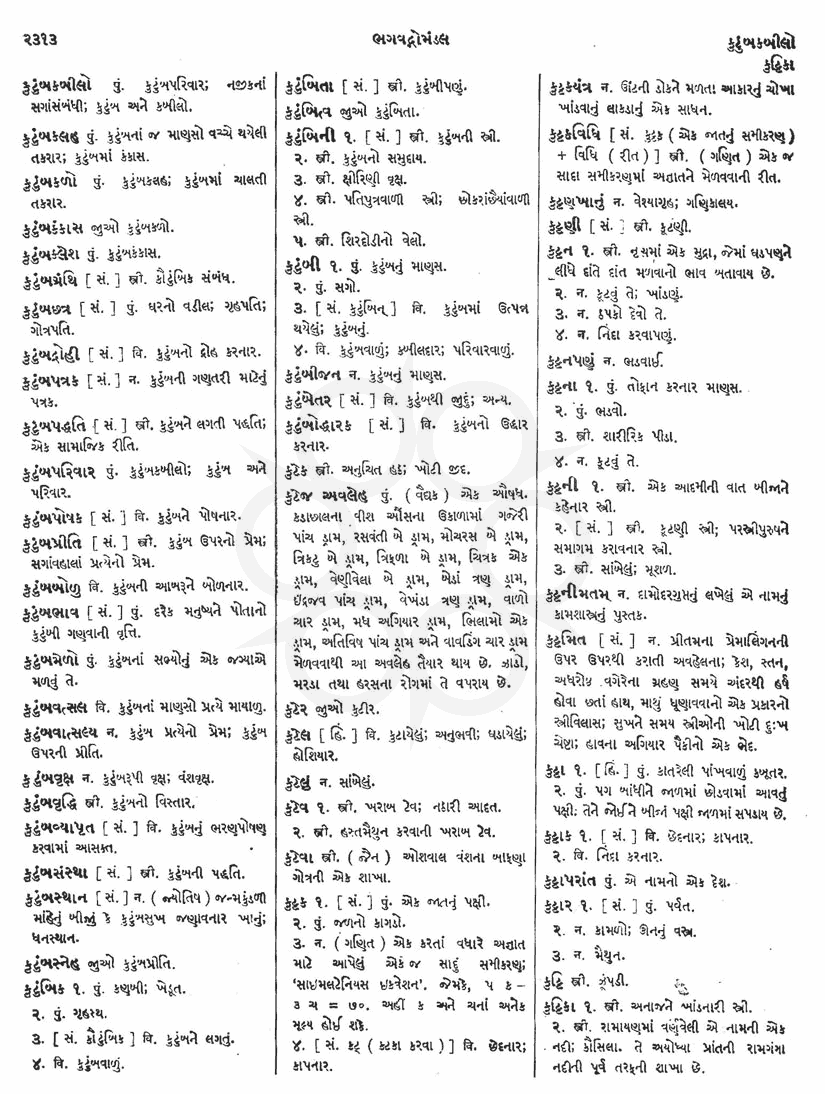 ૨૩૧૩
ભગવદ્ગોમંડલ
કુટુંબકબીલો
કુટ્ટિકા
કુટુંબકબીલો પું. કુટુંબપરિવાર; નજીકનાં
સગાંસંબંધી; કુટુંબ અને કબીલો.
કુટુંબકલહ પું. કુટુંબનાં જ માણસો વચ્ચે થયેલી
તકરાર; કુટુંબમાં કંકાસ.
કુટુંબકળો પું. કુટુંબકલહ; કુટુંબમાં ચાલતી
તકરાર.
કુટુંબકંકાસ જીઓ કુટુંબકળો.
કુટુંબક્લેશ પું. કુટુંબકંકાસ.
કુટુંબગ્રંથિ [ સં. ] સ્ત્રી. કૌટુંબિક સંબંધ.
કુટુંબછત્ર [ સં. ] પું. ઘરનો વડીલ; ગૃહપતિ;
ગોત્રપતિ.
કુટુંબદ્રોહી [ સં. ] વિ. કુટુંબનો દ્રોહ કરનાર.
કુટુંબપત્રક [ સં. ] ન. કુટુંબની ગણતરી માટેનું
પત્રક.
કુટુંબપદ્ધતિ [ સં. ] સ્ત્રી. કુટુંબને લગતી પદ્ધતિ;
એક સામાજિક રીતિ.
કુટુંબપરિવાર પું. કુટુંબકબીલો; કુટુંબ અને
પરિવાર.
કુટુંબપોષક [ સં. ] વિ. કુટુંબને પોષનાર.
કુટુંબપ્રીતિ [ સં. ] સ્ત્રી. કુટુંબ ઉપરનો પ્રેમ;
સગાંવહાલાં પ્રત્યેનો પ્રેમ.
કુટુંબબોળુ વિ. કુટુંબની આબરૂને બોળનાર.
કુટુંબભાવ [ સં. ] પું. દરેક મનુષ્યને પોતાનો
કુટુંબી ગણવાની વૃત્તિ.
કુટુંબમેળો પું. કુટુંબનાં સભ્યોનું એક જગ્યાએ
મળવું તે.
કુટુંબવત્સલ વિ. કુટુંબનાં માણસો પ્રત્યે માયાળુ.
કુટુંબવાત્સલ્ય ન. કુટુંબ પ્રત્યેનો પ્રેમ; કુટુંબ
ઉપરની પ્રીતિ.
કુટુંબવૃક્ષ ન. કુટુંબરૂપી વૃક્ષ; વંશવૃક્ષ.
કુટુંબવૃદ્ધિ સ્ત્રી. કુટુંબનો વિસ્તાર.
કુટુંબવ્યાપૃત [ સં. ] વિ. કુટુંબનું ભરણપોષણ
કરવામાં આસક્ત.
કુટુંબસંસ્થા [ સં. ] સ્ત્રી. કુટુંબની પદ્ધતિ.
કુટુંબસ્થાન [ સં. ] ન. ( જ્યોતિષ ) જન્મકુંડળી
માંહેનું બીજું કે કુટુંબસુખ જણાવનાર ખાનું;
ધનસ્થાન.
કુટુંબસ્નેહ જીઓ કુટુંબપ્રીતિ.
કુટુંબિક ૧. પું. કણબી; ખેડૂત.
૨. પું. ગૃહસ્થ.
૩. [ સં. કૌટુંબિક ] વિ. કુટુંબને લગતું.
૪. વિ. કુટુંબવાળું.
કુટુંબિતા [ સં. ] સ્ત્રી. કુટુંબીપણું.
કુટુંબિત્વ જીઓ કુટુંબિતા.
કુટુંબિની ૧. [ સં. ] સ્ત્રી. કુટુંબની સ્ત્રી.
૨. સ્ત્રી. કુટુંબનો સમુદાય.
૩. સ્ત્રી. ક્ષીરિણી વૃક્ષ.
૪. સ્ત્રી. પતિપુત્રવાળી સ્ત્રી; છોકરાંછૈયાંવાળી
સ્ત્રી.
૫. સ્ત્રી. શિરદોડીનો વેલો.
કુટુંબી ૧. પું. કુટુંબનું માણસ.
૨. પું. સગો.
૩. [ સં. કુટુંબિન્ ] વિ. કુટુંબમાં ઉત્પન્ન
થયેલું; કુટુંબનું.
૪. વિ. કુટુંબવાળું; કબીલદાર; પરિવારવાળું.
કુટુંબીજન ન. કુટુંબનું માણસ.
કુટુંબેતર [ સં. ] વિ. કુટુંબથી જુદું; અન્ય.
કુટુંબોદ્ધારક [ સં. ] વિ. કુટુંબનો ઉદ્ધાર
કરનાર.
કુટેક સ્ત્રી. અનુચિત હઠ; ખોટી જીદ.
કુટેજ અવલેહ પું. ( વૈદ્યક ) એક ઔષધ.
કડાછાલના વીશ ઔંસના ઉકાળામાં ગજેરી
પાંચ ડ્રામ, રસવંતી બે ડ્રામ, મોચરસ બે ડ્રામ,
ત્રિકટુ બે ડ્રામ, ત્રિફળા બે ડ્રામ, ચિત્રક એક
ડ્રામ, વેણીવેલા બે ડ્રામ, બેડાં ત્રણ ડ્રામ,
ઇંદ્રજવ પાંચ ડ્રામ, વેખંડા ત્રણ ડ્રામ, વાળો
ચાર ડ્રામ, મધ અગિયાર ડ્રામ, ભિલામો એક
ડ્રામ, અતિવિષ પાંચ ડ્રામ અને વાવડિંગ ચાર ડ્રામ
મેળવવાથી આ અવલેહ તૈયાર થાય છે. ઝાડો,
મરડા તથા હરસના રોગમાં તે વપરાય છે.
કુટેર જીઓ કુટીર.
કુટેલ [ હિં. ] વિ. કુટાયેલું; અનુભવી; ઘડાયેલું;
હોશિયાર.
કુટેલું ન. સાંબેલું.
કુટેવ ૧. સ્ત્રી. ખરાબ ટેવ; નઠારી આદત.
૨. સ્ત્રી. હસ્તમૈથુન કરવાની ખરાબ ટેવ.
કુટેવા સ્ત્રી. ( જૈન ) ઓશવાલ વંશના બાફણા
ગોત્રની એક શાખા.
કુટ્ટક ૧. [ સં. ] પું. એક જાતનું પક્ષી.
૨. પું. જળનો કાગડો.
૩. ન. ( ગણિત ) એક કરતાં વધારે અજ્ઞાત
માટે આપેલું એક જ સાદું સમીકરણ;
‘સાઇમલટેનિયસ ઇક્વેશન’. જેમકે, ૫ ક –
૩ ચ = ૭૦. અહીં ક અને ચનાં અનેક
મૂલ્ય હોઈ શકે.
૪. [ સં. કટ્ ( કટકા કરવા ) ] વિ. છેદનાર;
કાપનાર.
કુટ્ટકયંત્ર ન. ઊંટની ડોકને મળતા આકારનું ચોખા
ખાંડવાનું લાકડાનું એક સાધન.
કુટ્ટકવિધિ [ સં. કુટ્ટક ( એક જાતનું સમીકરણ )
+ વિધિ ( રીત ) ] સ્ત્રી. ( ગણિત ) એક જ
સાદા સમીકરણમાં અજ્ઞાતને મેળવવાની રીત.
કુટ્ટણખાનું ન. વેશ્યાગૃહ; ગણિકાલય.
કુટ્ટણી [ સં. ] સ્ત્રી. કૂટણી.
કુટ્ટન ૧. સ્ત્રી. નૃત્યમાં એક મુદ્રા, જેમાં ઘડપણને
લીધે દાંતે દાંત મળવાનો ભાવ બતાવાય છે.
૨. ન. કૂટવું તે; ખાંડણું.
૩. ન. ઠપકો દેવો તે.
૪. ન. નિંદા કરવાપણું.
કુટ્ટનપણું ન. ભડવાઈ.
કુટ્ટના ૧. પું. તોફાન કરનાર માણસ.
૨. પું. ભડવો.
૩. સ્ત્રી. શારીરિક પીડા.
૪. ન. કૂટવું તે.
કુટ્ટની ૧. સ્ત્રી. એક આદમીની વાત બીજાને
કહેનાર સ્ત્રી.
૨. [ સં. ] સ્ત્રી. કૂટણી સ્ત્રી; પરસ્ત્રીપુરુષને
સમાગમ કરાવનાર સ્ત્રી.
૩. સ્ત્રી. સાંબેલું; મૂશળ.
કુટ્ટનીમતમ્ ન. દામોદરગુપ્તનું લખેલું એ નામનું
કામશાસ્ત્રનું પુસ્તક.
કુટ્ટમિત [ સં. ] ન. પ્રીતમના પ્રેમાલિંગનની
ઉપર ઉપરથી કરાતી અવહેલના; કેશ, સ્તન,
અધરોષ્ઠ વગેરેના ગ્રહણ સમયે અંદરથી હર્ષ
હોવા છતાં હાથ, માથું ધૂણાવવાનો એક પ્રકારનો
સ્ત્રીવિલાસ; સુખને સમય સ્ત્રીઓની ખોટી દુઃખ
ચેષ્ટા; હાવના અગિયાર પૈકીનો એક ભેદ.
કુટ્ટા ૧. [ હિં. ] પું. કાતરેલી પાંખવાળું કબૂતર.
૨. પું. પગ બાંધીને જાળમાં છોડવામાં આવતું
પક્ષી; તેને જોઈને બીજાં પક્ષી જાળમાં સપડાય છે.
કુટ્ટાક ૧. [ સં. ] વિ. છેદનાર; કાપનાર.
૨. વિ. નિંદા કરનાર.
કુટ્ટાપરાંત પું. એ નામનો એક દેશ.
કુટ્ટાર ૧. [ સં. ] પું. પર્વત.
૨. ન. કામળો; ઊનનું વસ્ત્ર.
૩. ન. મૈથુન.
કુટ્ટિ સ્ત્રી. ઝૂંપડી.
કુટ્ટિકા ૧. સ્ત્રી. અનાજને ખાંડનારી સ્ત્રી.
૨. સ્ત્રી. રામાયણમાં વર્ણવેલી એ નામની એક
નદી; કૌસિલા. તે અયોધ્યા પ્રાંતની રામગંગા
નદીની પૂર્વ તરફની શાખા છે.